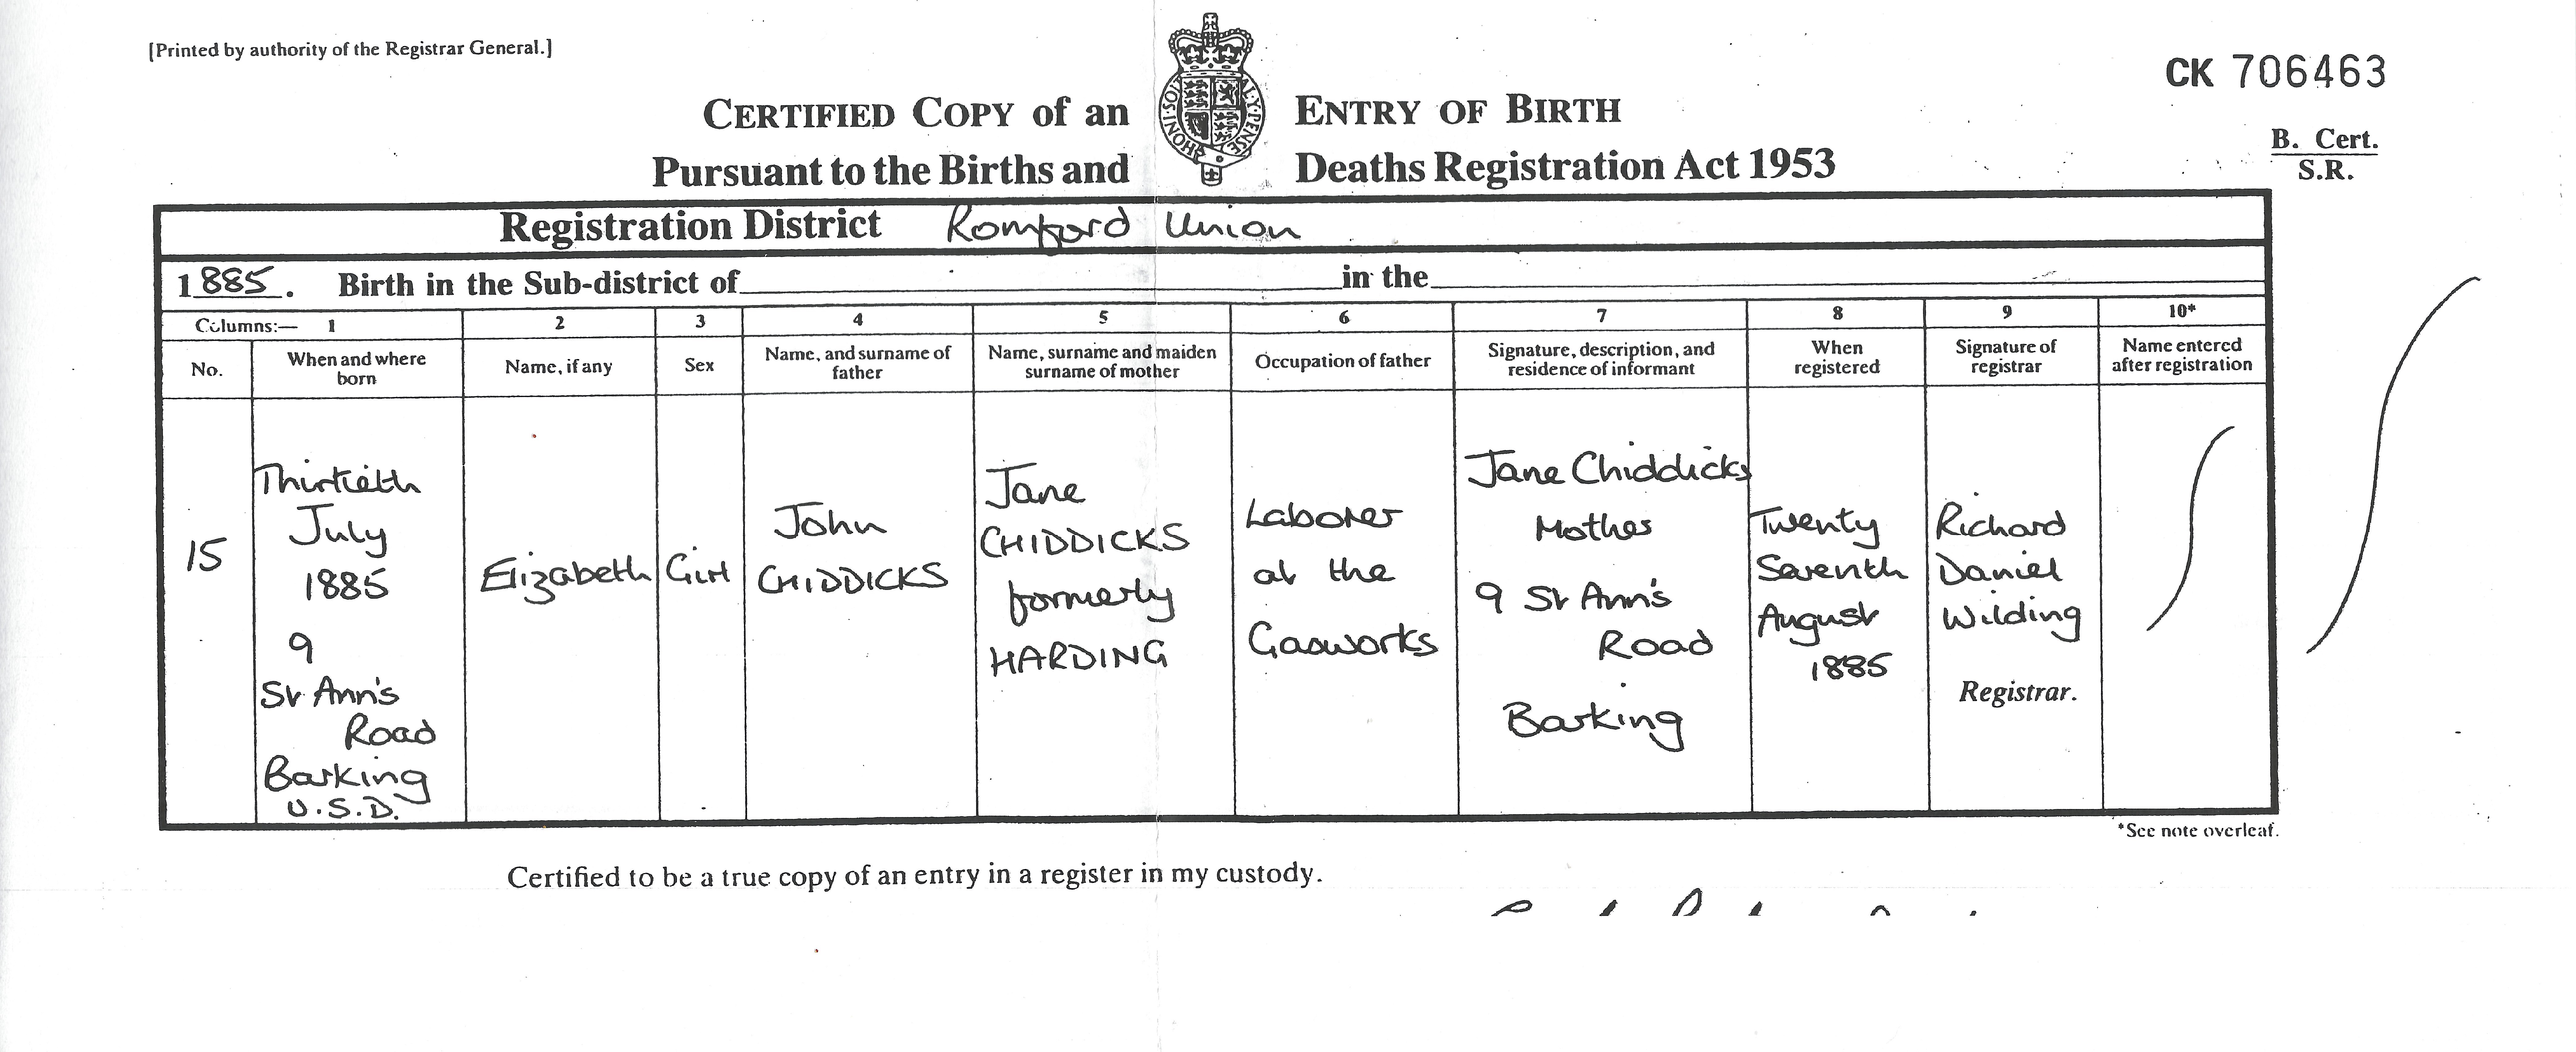 [Printed by authority of the Registrar General.]
CK 706463
B. Cert.
S.R.
CERTIFIED COPY of an ENTRY OF BIRTH
Pursuant to the Births and Deaths Registration Act 1953
HONI·SOIT AL·Y·PENSE
Registration District Romford Union
1885. Birth in the Sub-district of in the
Columns:— 1 2 3 4 5 6 7 8 9 10*
No.
When and where
born
Name, if any
Sex
Name, and surname of
father
Name, surname and maiden
surname of mother
Occupation of father
Signature, description, and
residence of informant
When
registered
Signature of
registrar
Name entered
after registration
15
Thirtieth
July
1885
9
St Ann's
Road
Barking
U.S.D.
Elizabeth
Girl
John
CHIDDICKS
Jane
CHIDDICKS
formerly
HARDING
Laborer
at the
Gasworks
Jane Chiddicks
Mother
9 St Ann's
Road
Barking
Twenty
Seventh
August
1885
Richard
Daniel
Wilding
Registrar.
*See note overleaf.
Certified to be a true copy of an entry in a register in my custody.